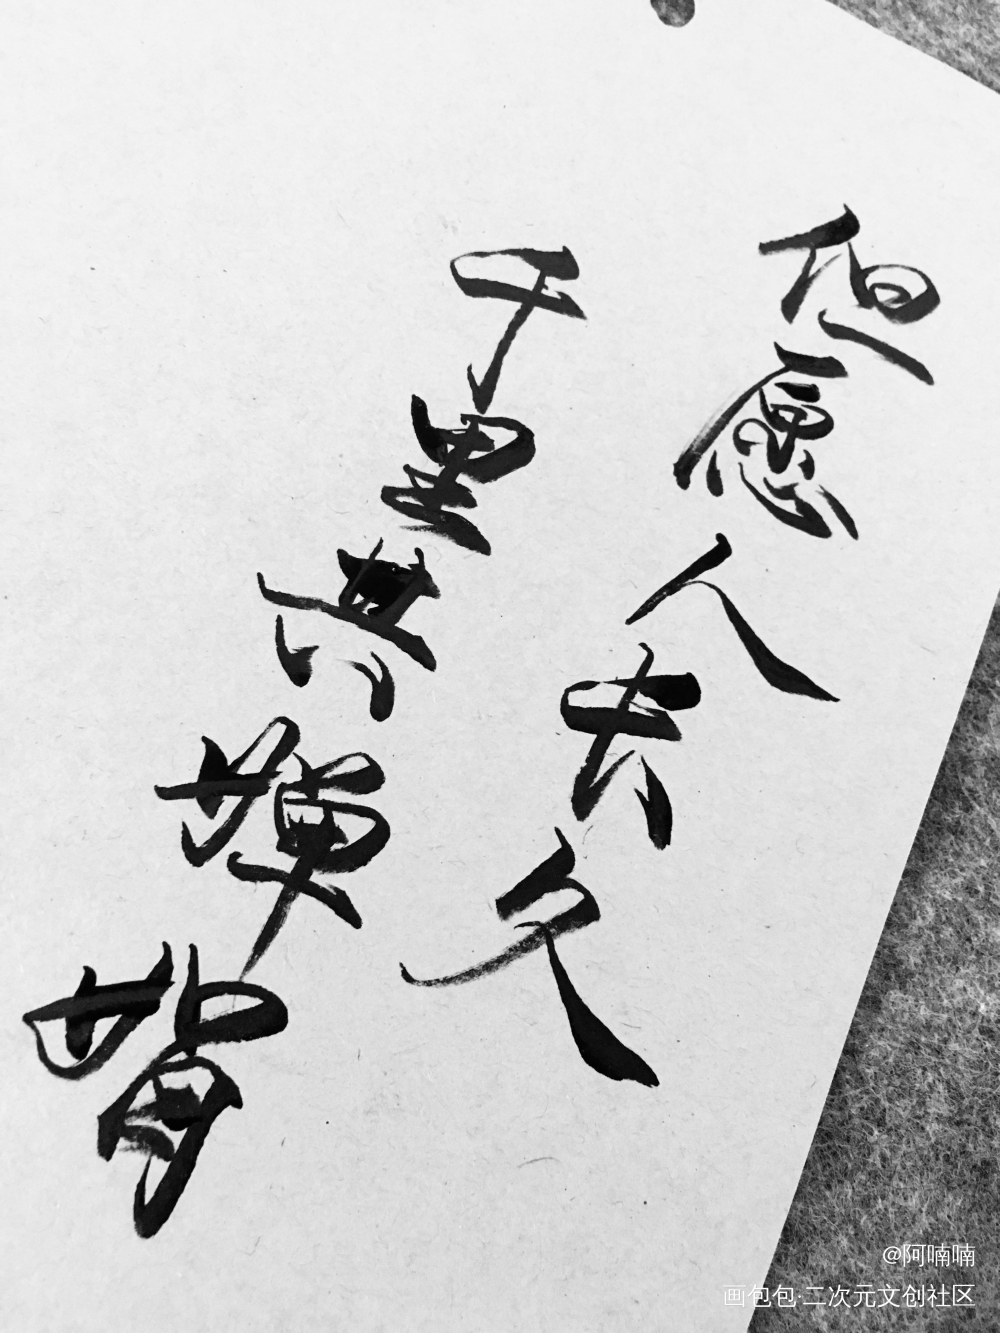 但愿人长久
千里共婵娟
@阿喃喃
画包包·二次元文创社区